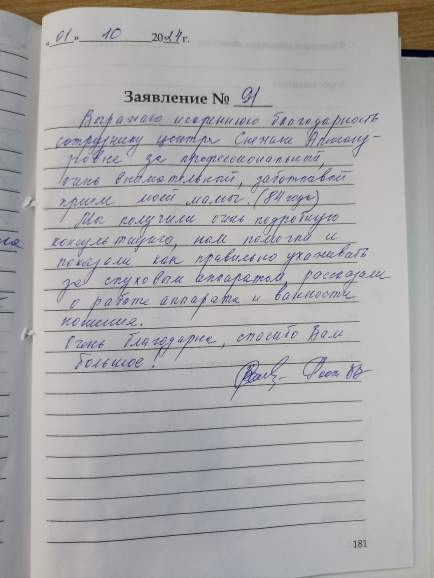 „01" 10 2024 г.
Заявление № 91
Выражаю искреннюю благодарность
сотруднику центра
за профессиональный,
очень внимательный, заботливый
приём моей мамы. (84 года)
Мы получили очень подробную
консультацию, нам помогли и
показали как правильно ухаживать
за слуховым аппаратом, рассказали
о работе аппарата и важности
ношения.
Очень благодарна, спасибо Вам
большое!
181